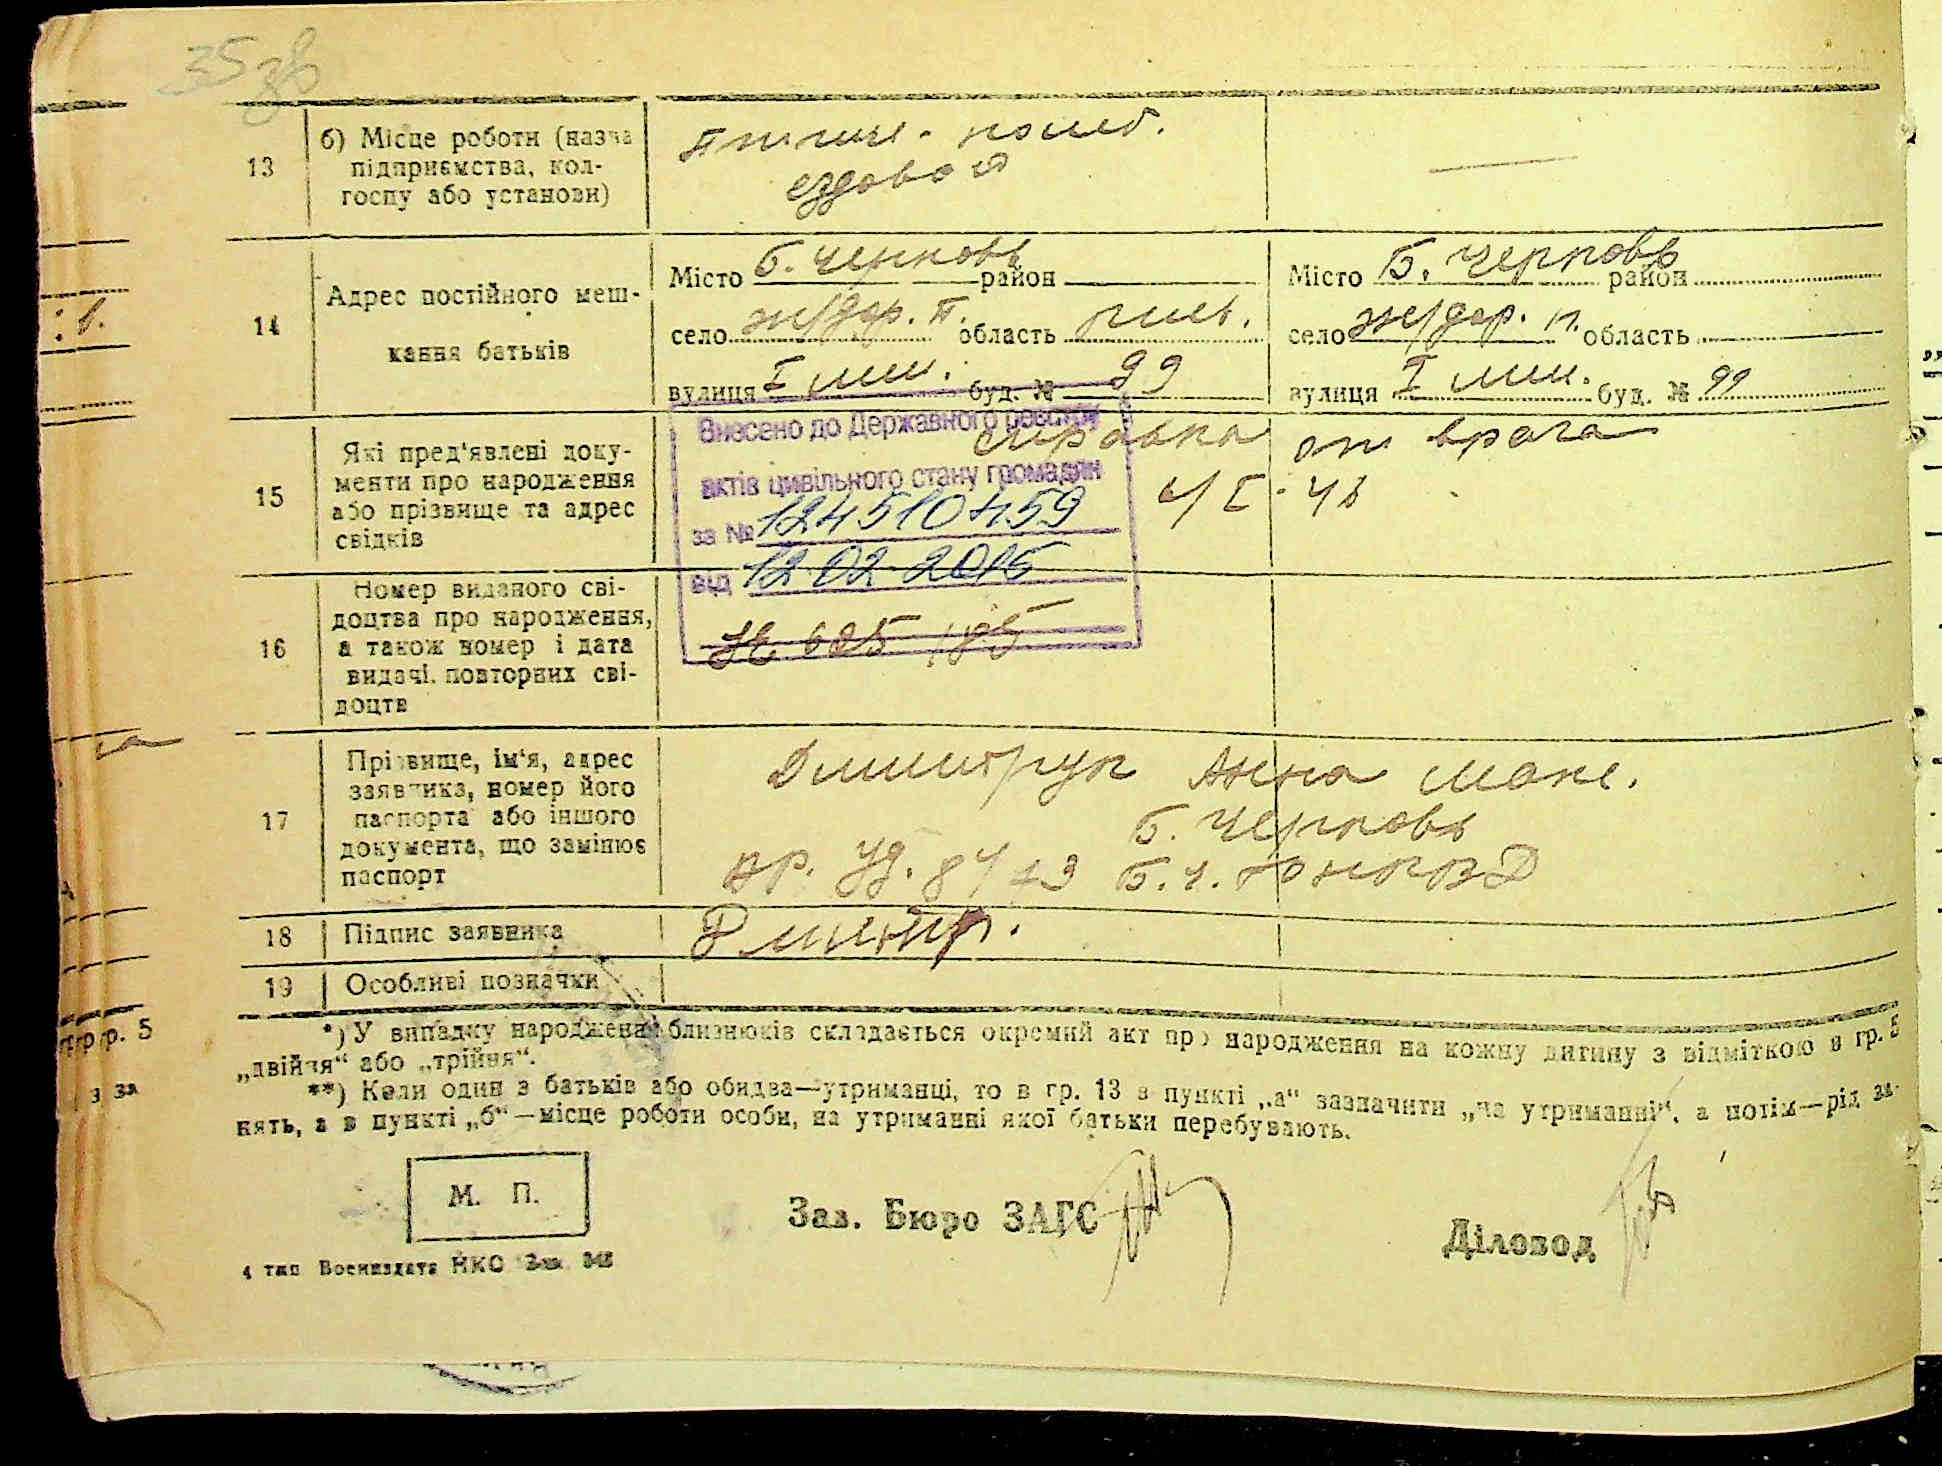 35 38
13 б) Місце роботи (назва
підприємства, кол-
госпу або установи)
ездовой
14 Адрес постійного меш-
кання батьків
Місто Б. Черновь район
село ж/дор. п. область
вулиця I буд. № 99
Місто Б. Черновь район
село ж/дор. п. область
вулиця I буд. № 99
15 Які пред'явлені доку-
менти про народження
або прізвище та адрес
свідків
справка от врача
4/I - 48
Внесено до Державного реєстру
актів цивільного стану громадян
за № 124510459
від 12.02.2016
16 Номер виданого сві-
доцтва про народження,
а також номер і дата
видачі повторних сві-
доцтв
17 Прізвище, ім'я, адрес
заявника, номер його
паспорта або іншого
документа, що замінює
паспорт
Дмитрук Анна Макс.
Б. Черновь
вр. уд.
18 Підпис заявника
19 Особливі позначки
*) У випадку народження близнюків складається окремий акт про народження на кожну дитину з відміткою в гр. 5
„двійня“ або „трійня“.
**) Коли один з батьків або обидва—утриманці, то в гр. 13 в пункті „а“ зазначити „на утриманні“, а потім—рід за-
нять, а в пункті „б“—місце роботи особи, на утриманні якої батьки перебувають.
М. П.
Зав. Бюро ЗАГС
Діловод
4 тип Воениздата НКО Зак
гр. 5
з за